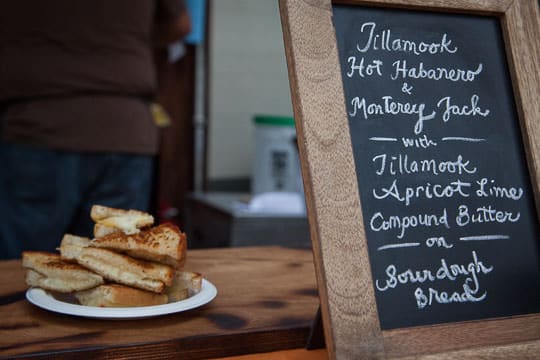 Tillamook
Hot Habanero
&
Monterey Jack
with
Tillamook
Apricot Lime
Compound Butter
on
Sourdough
Bread